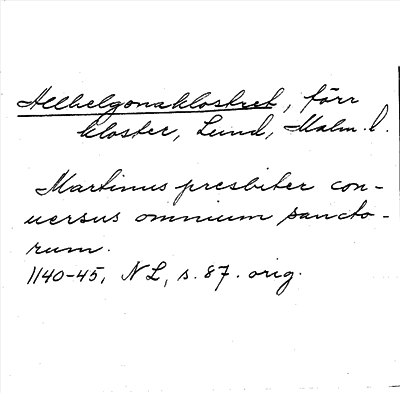 Allhelgonaklostret, förr
kloster, Lund, Malm. l.
Martinus presbiter con-
uersus omnium sancto-
rum.
1140-45, NL, s. 87. orig.